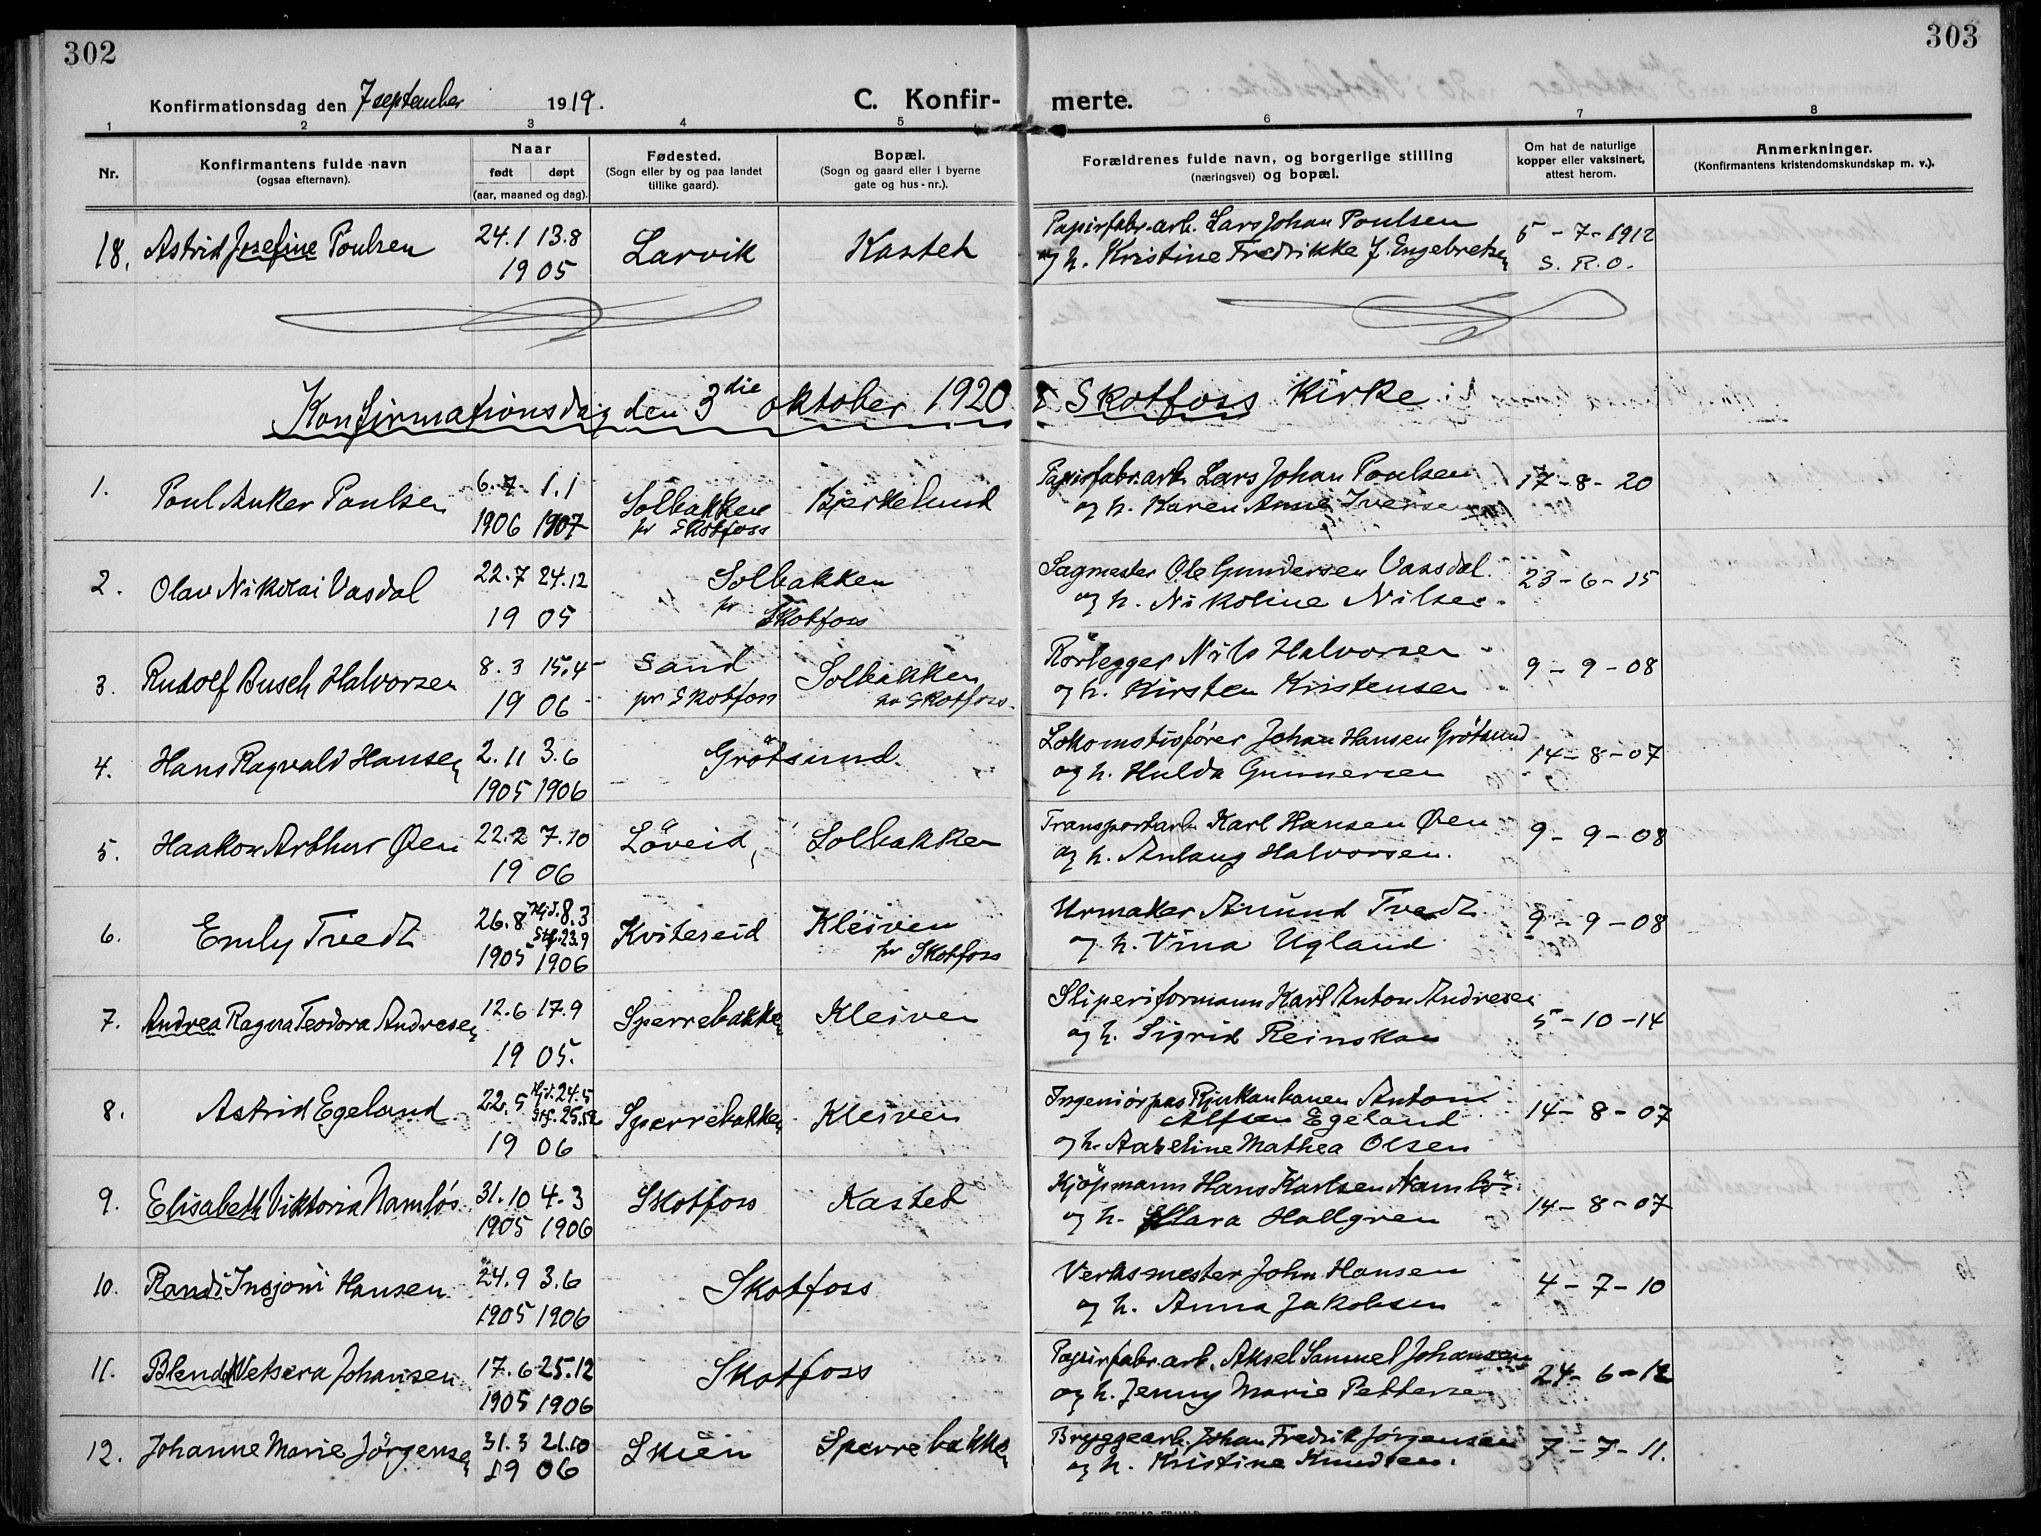 302
303
Konfirmationsdag den 7 september 1919.
C. Konfir-
merte.
1 2 3 4 5 6 7 8
Nr.
Konfirmantens fulde navn
(ogsaa efternavn).
Naar
født døpt
(aar, maaned og dag).
Fødested.
(Sogn eller by og paa landet
tillike gaard).
Bopæl.
(Sogn og gaard eller i byerne
gate og hus-nr.).
Forældrenes fulde navn, og borgerlige stilling
(næringsvei) og bopæl.
Om hat de naturlige
kopper eller vaksinert,
attest herom.
Anmerkninger.
(Konfirmantens kristendomskundskap m. v.).
18. Astrid Josefine Poulsen 24.1 13.8 Larvik Kastet Papirfabr.arb. Lars Johan Poulsen 5-7-1912
1905 og h. Kristine Fredrikke J. Engebretsen S. R. O.
Konfirmationsdag den 3die oktober 1920 i Skotfoss Kirke:
1. Poul Anker Poulsen 6.7 1.1 Solbakken Bjerkelund Papirfabr.arb. Lars Johan Poulsen 17-8-20
1906 1907 pr Skotfoss og h. Karen Anne Iversen
2. Olav Nikolai Vasdal 22.7 24.12 Solbakken Sagmester Ole Gundersen Vaasdal 23-6-15
1905 pr Skotfoss og h. Nikoline Nilsen
3. Rudolf Busch Halvorsen 8.3 15.4 Sand Solbakken Rörlegger Nils Halvorsen 9-9-08
1906 pr Skotfoss pr Skotfoss og h. Kirsten Kristensen
4. Hans Ragvald Hansen 2.11 3.6 Grötsund Lokomotivfører Johan Hansen Grötsund 14-8-07
1905 1906 og h. Hulda Gunnersen
5. Haakon Arthur Øen 22.2 7.10 Löveid Solbakken Transportarb. Karl Hansen Øen 9-9-08
1906 og h. Anlaug Halvorsen.
6. Emly Tvedt 26.8 Hjd. 8.3 Kviteseid Kleiven Urmaker Anund Tvedt 9-9-08
Stf. 23.9
1905 1906 pr Skotfoss og h. Vina Ugland
7. Andrea Ragna Teodora Andresen 12.6 17.9 Sperrebakken Kleiven Sliperiformann Karl Anton Andresen 5-10-14
1905. og h. Sigrid Reinskau
8. Astrid Egeland 22.5 Hjd. 24.5 Sperrebakken Kleiven Ingeniör paa Rjukanbanen Anton 14-8-07
Stf. 25.12 Alfsen Egeland
1906 og h. Mathea Olsen
9. Elisabeth Viktoria Namlös 31.10 4.3 Skotfoss Kastet Kjöpmann Hans Karlsen Namlös 14-8-07
1905 1906 og h. Klara Hallgren
10. Randi Insjoni Hansen 24.9 3.6 Skotfoss Verksmester John Hansen 4-7-10
1905 1906 og h. Anna Jakobsen
11. Blenda Vetsera Johansen 17.6 25.12 Skotfoss Papirfabr.arb. Aksel Samuel Johansen 24-6-12
1905 1906 og h. Jenny Marie Pettersen
12. Johanne Marie Jörgensen 31.3 21.10 Skien Sperrebakken Bryggearb. Johan Fredrik Jörgensen 7-7-11.
1906 og h. Kristine Knudsen.